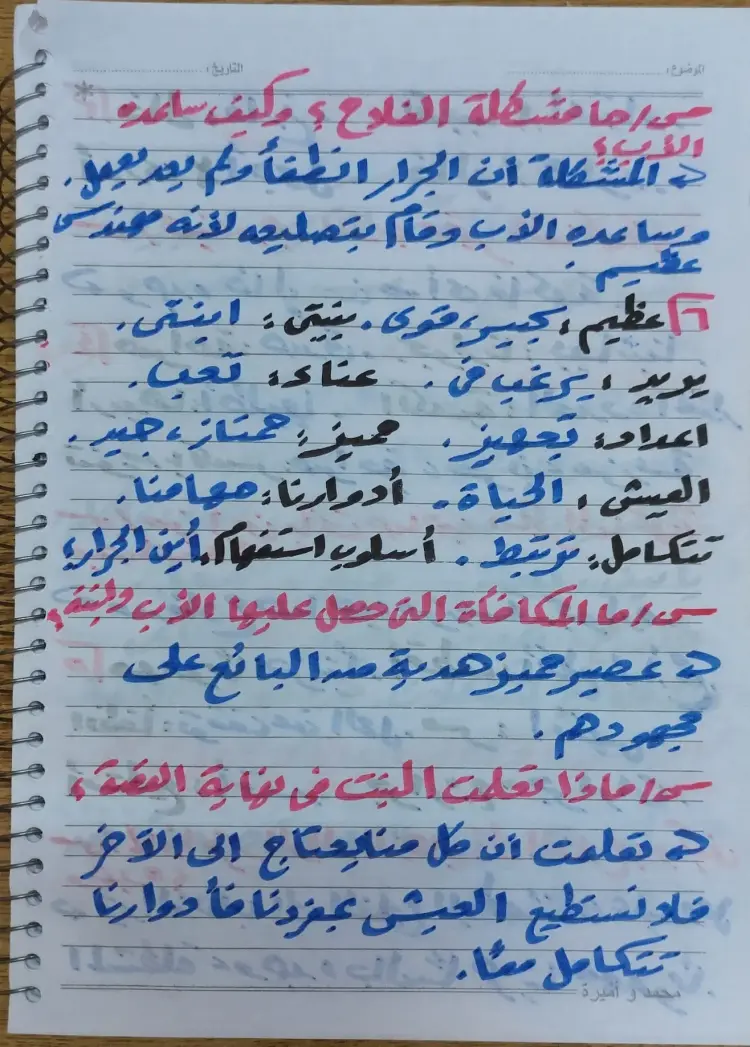 الموضوع: التاريخ:
س/ ما مشكلة الفلاح؟ وكيف ساعده
الأب؟
المشكلة أن الجرار انطفأ ولم يعد يعمل.
وساعده الأب وقام بتصليحه لأنه مهندس
عظيم.
٦ عظيم: كبير، قوى. بنيتى: ابنتى.
يريد: يرغب فى. عناء: تعب.
اعداد: تجهيز. مميز: ممتاز، جيد.
العيش: الحياة. أدوارنا: مهامنا.
تتكامل: ترتبط. أسلوب استفهام: أين الجرار؟
س/ ما المكافأة التى حصل عليها الأب وابنته؟
عصير مميز هدية من البائع على
مجهودهم.
س/ ماذا تعلمت البنت فى نهاية القصة؟
تعلمت أن كل منا يحتاج الى الآخر
فلا نستطيع العيش بمفردنا فأدوارنا
تتكامل معًا.
محمد و أميرة